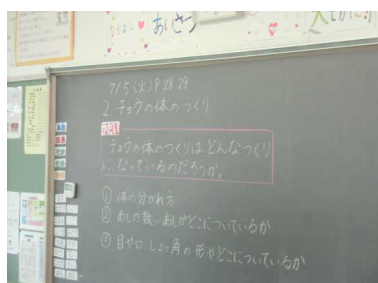 あいさつ
7/5(火)P28 29
2 チョウの体のつくり
チョウの体のつくりは どんなつくり
に なっているのだろうか。
① 体の分かれ方
② あしの数、あしがどこについているか
③ 目や口、しょっ角の形やどこについているか